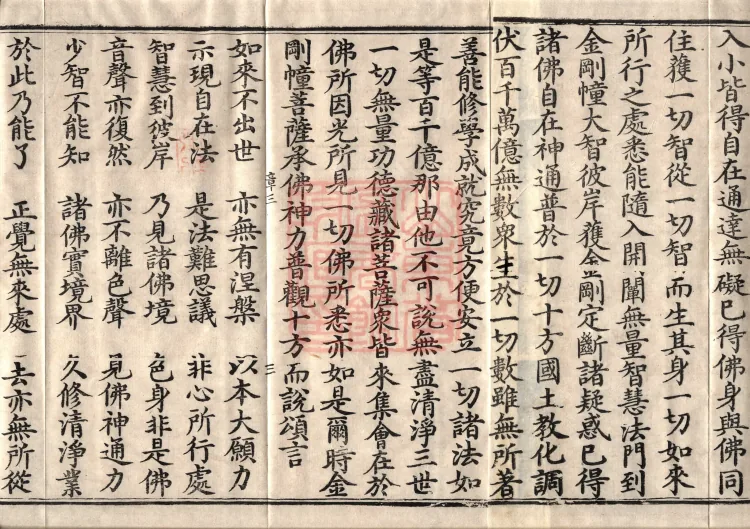 入小皆得自在通達無礙已得佛身與佛同
住獲一切智從一切智而生其身一切如來
所行之處悉能隨入開闡無量智慧法門到
金剛幢大智彼岸獲金剛定斷諸疑惑已得
諸佛自在神通普於一切十方國土教化調
伏百千萬億無數衆生於一切數雖無所著
善能修學成就究竟方便安立一切諸法如
是等百千億那由他不可說無盡清淨三世
一切無量功德藏諸菩薩衆皆來集會在於
佛所因光所見一切佛所悉亦如是爾時金
剛幢菩薩承佛神力普觀十方而說頌言
章三 三
如來不出世 亦無有涅槃 以本大願力
示現自在法 是法難思議 非心所行處
智慧到彼岸 乃見諸佛境 色身非是佛
音聲亦復然 亦不離色聲 見佛神通力
少智不能知 諸佛實境界 久修清淨業
於此乃能了 正覺無來處 去亦無所從